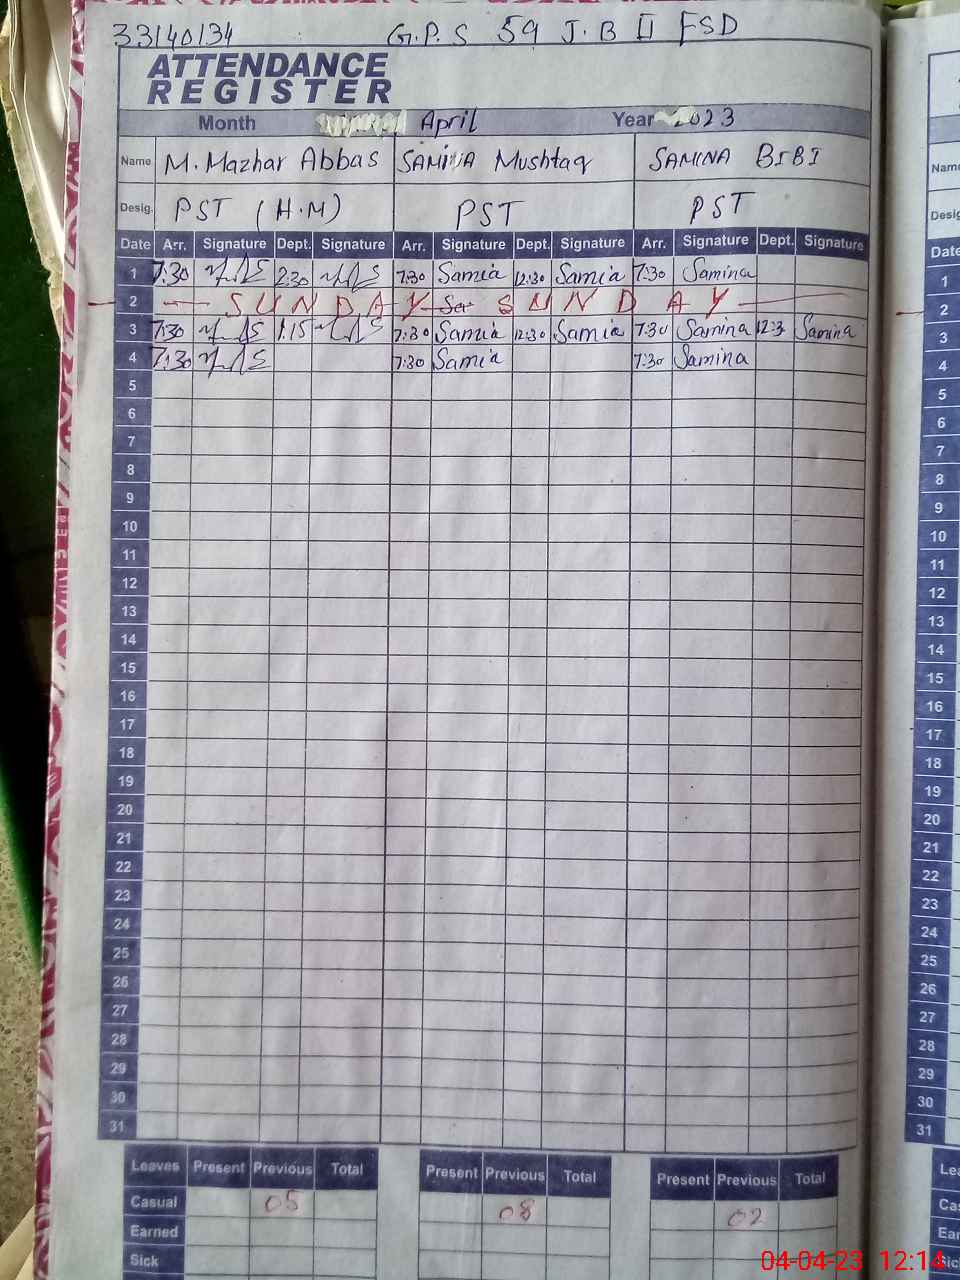 33140134 G.P.S 59 J.B II FSD
ATTENDANCE
REGISTER
Month April Year 2023
Name M. Mazhar Abbas SAMINA Mushtaq SAMINA BIBI
Desig. PST (H.M) PST PST
Date Arr. Signature Dept. Signature Arr. Signature Dept. Signature Arr. Signature Dept. Signature Date
1 7:30 2:30 7:30 Samia 12:30 Samia 7:30 Samina 1
2 SUNDAY SUNDAY 2
3 7:30 1:15 7:30 Samia 12:30 Samia 7:30 Samina 12:3 Samina 3
4 7:30 7:30 Samia 7:30 Samina 4
5 5
6 6
7 7
8 8
9 9
10 10
11 11
12 12
13 13
14 14
15 15
16 16
17 17
18 18
19 19
20 20
21 21
22 22
23 23
24 24
25 25
26 26
27 27
28 28
29 29
30 30
31 31
Leaves Present Previous Total Present Previous Total Present Previous Total
Casual 05 08 02
Earned
Sick
04-04-23 12:14